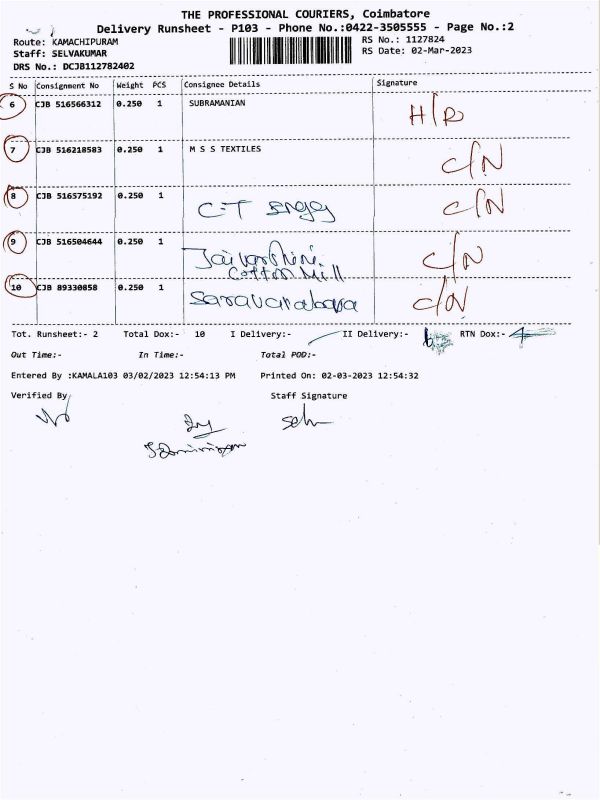 THE PROFESSIONAL COURIERS, Coimbatore
Delivery Runsheet - P103 - Phone No.:0422-3505555 - Page No.:2
Route: KAMACHIPURAM
RS No.: 1127824
Staff: SELVAKUMAR
RS Date: 02-Mar-2023
DRS No.: DCJB112782402
S No Consignment No Weight PCS Consignee Details Signature
6 CJB 516566312 0.250 1 SUBRAMANIAN H/D
7 CJB 516218583 0.250 1 M S S TEXTILES C/N
8 CJB 516575192 0.250 1 C/N
9 CJB 516504644 0.250 1 Jaivarshini Cotton Mill C/N
10 CJB 89330858 0.250 1 C/N
Tot. Runsheet:- 2 Total Dox:- 10 I Delivery:- II Delivery:- 6 RTN Dox:- 4
Out Time:- In Time:- Total POD:-
Entered By :KAMALA103 03/02/2023 12:54:13 PM Printed On: 02-03-2023 12:54:32
Verified By Staff Signature